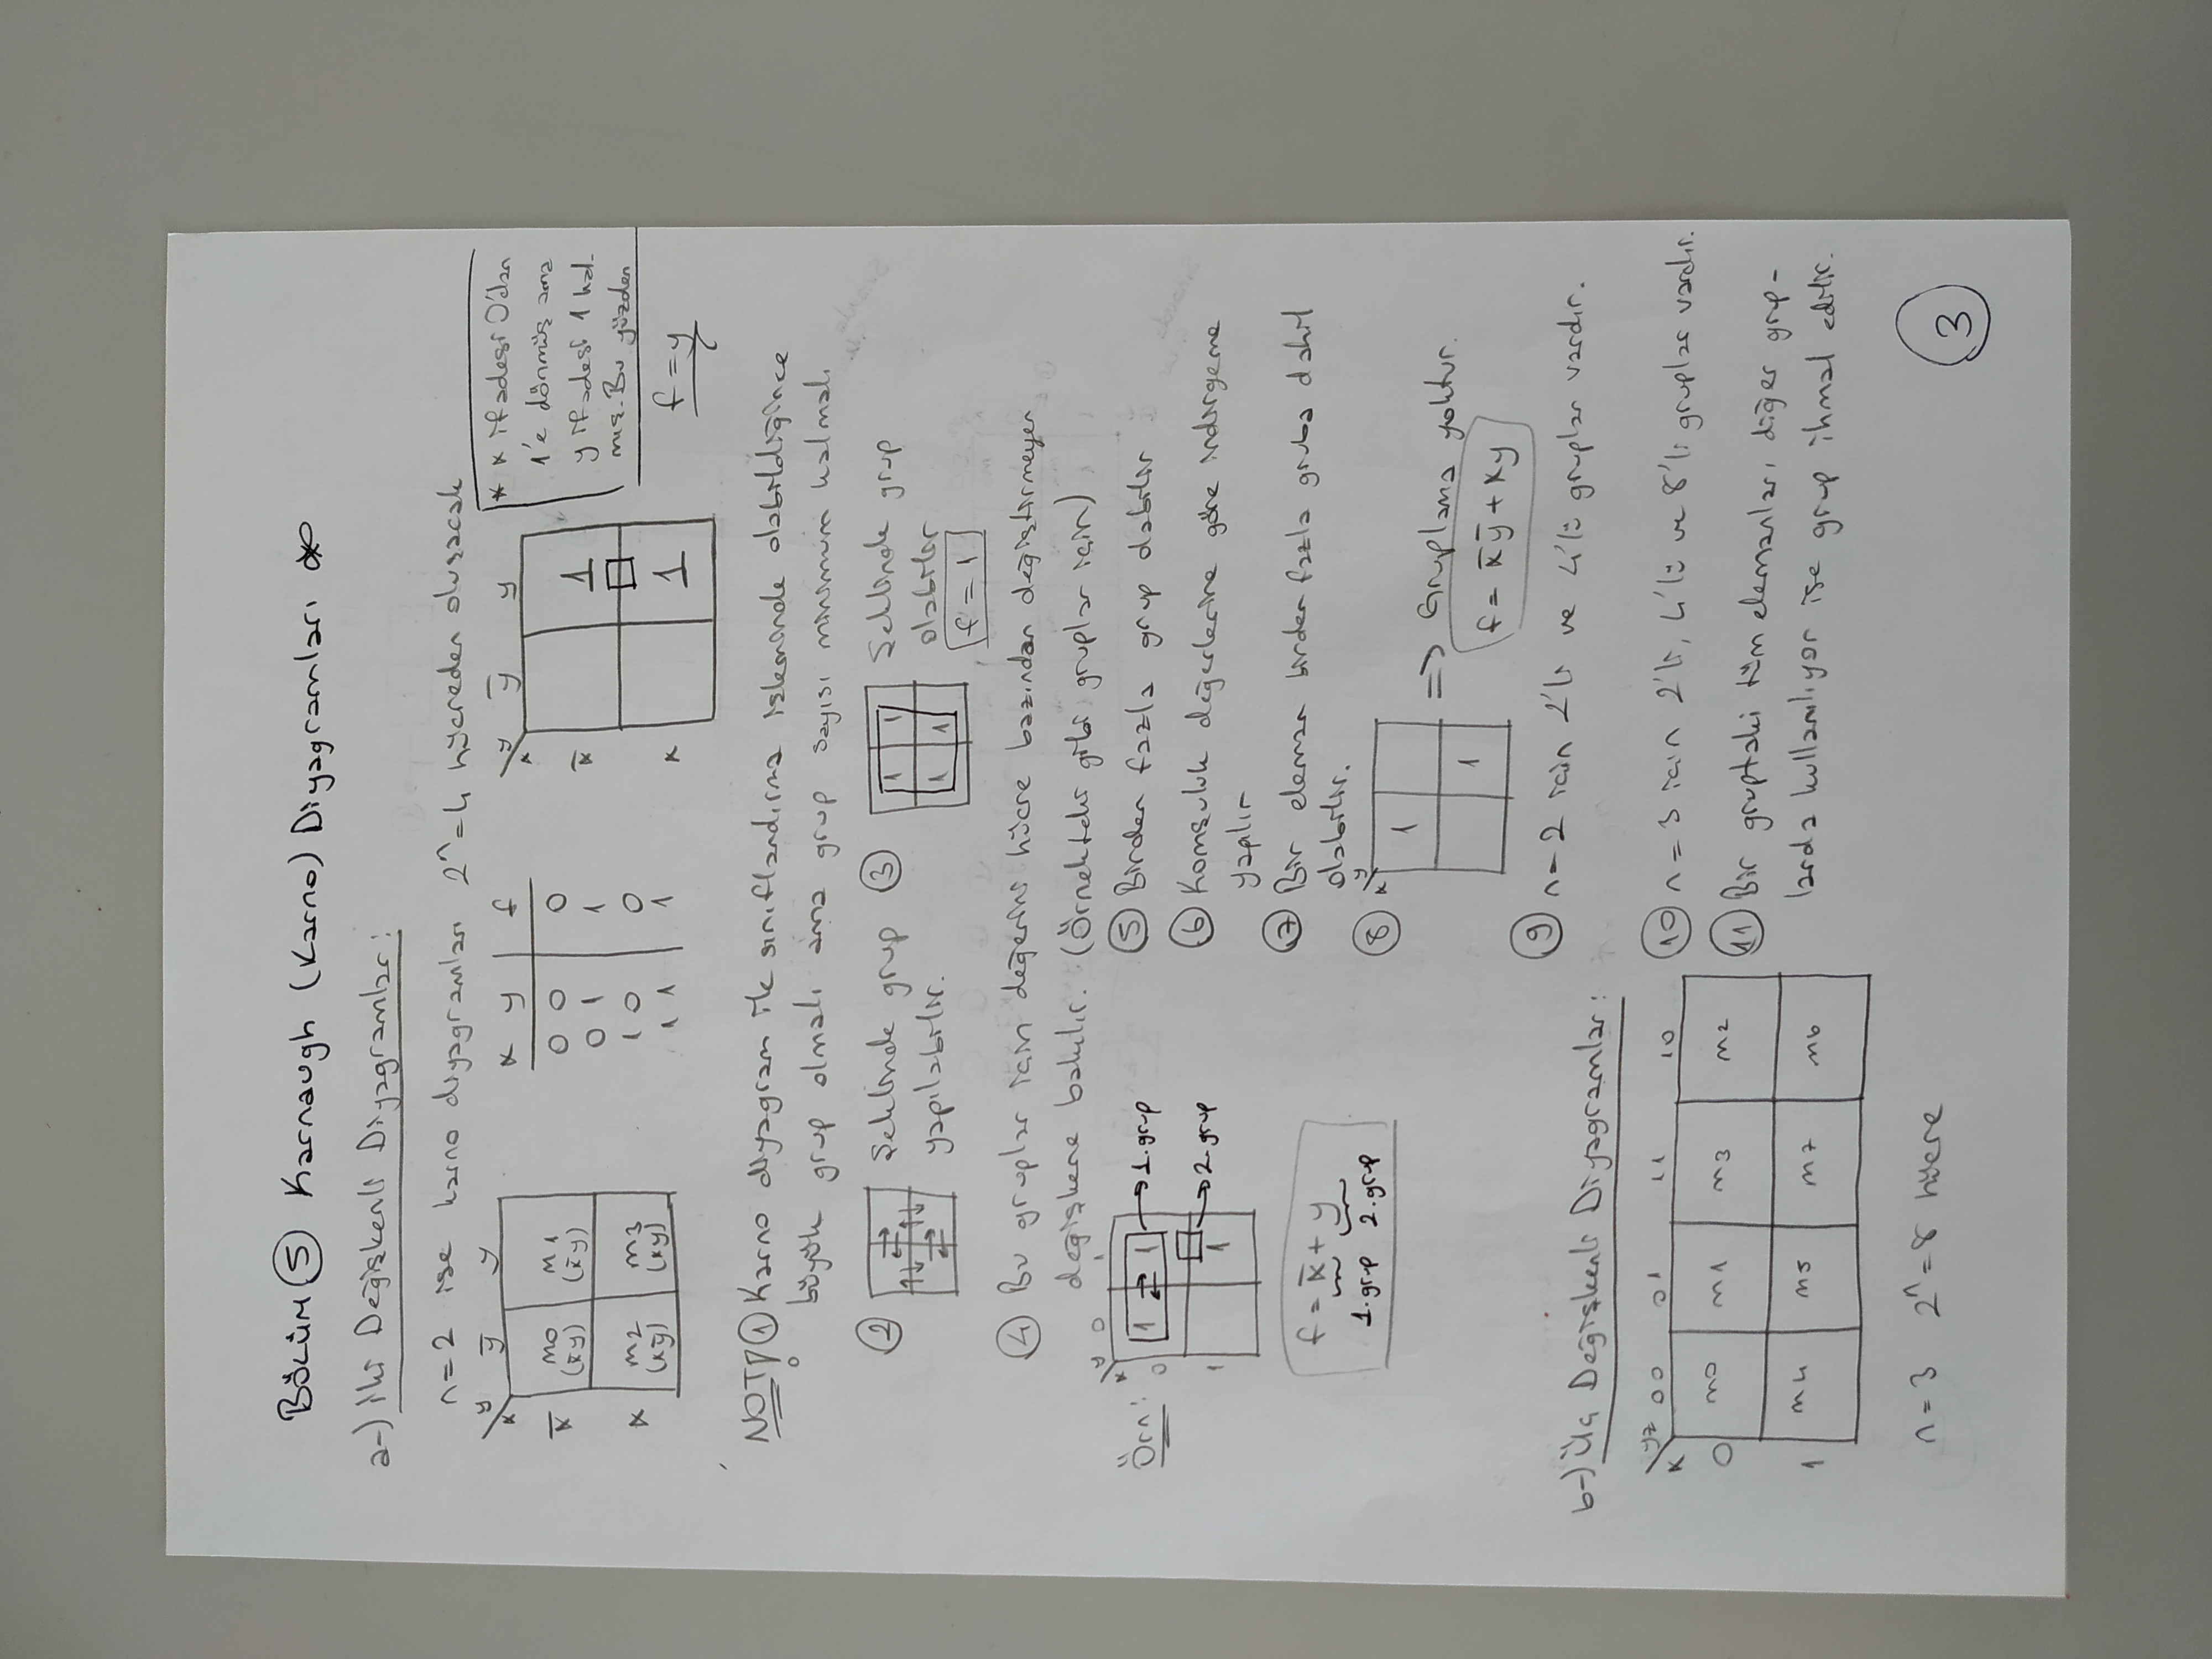 BÖLÜM 5 Karnaugh (Karno) Diyagramları *
a-) İki Değişkenli Diyagramlar:
n=2 ise karno diyagramları 2ⁿ=4 hücreden oluşacak
y ȳ y
x
x̄ m0 m1
(x̄y) (x̄y)
x m2 m3
(xȳ) (xy)
x y f
0 0 0
0 1 1
1 0 0
1 1 1
y ȳ y
x
x̄ 1
x 1
* x ifadesi 0'dan
1'e dönmüş ama
y ifadesi 1 kal-
mış. Bu yüzden
f=y
NOT! 1 Karno diyagram ile sınıflandırma işleminde olabildiğince
büyük grup olmalı ama grup sayısı minimum kalmalı
2 Şeklinde grup
yapılabilir.
3 1 1
1 1
Şeklinde grup
olabilir
f = 1
4 Bu gruplar için değerini hücre bazından değiştirmeyen
değişkene bakılır. (Örnekteki gibi gruplar için)
Örn:
y 0 1
x
0 1 1 1.grup
2.grup
1 1
f = x̄ + y
1.grup 2.grup
5 Birden fazla grup olabilir
6 Komşuluk değerlerine göre indirgeme
yapılır
7 Bir eleman birden fazla gruba dahil
olabilir.
8 y
x
1
1
=> Gruplama yoktur.
f = x̄ȳ + xy
9 n=2 için 2'li ve 4'lü gruplar vardır.
b-) Üç Değişkenli Diyagramlar:
yz 00 01 11 10
x
0 m0 m1 m3 m2
1 m4 m5 m7 m6
n=3 2ⁿ=8 hücre
10 n = 3 için 2'li, 4'lü ve 8'li gruplar vardır.
11 Bir gruptaki tüm elemanları, diğer grup-
larda kullanılıyor ise grup ihmal edilir.
3